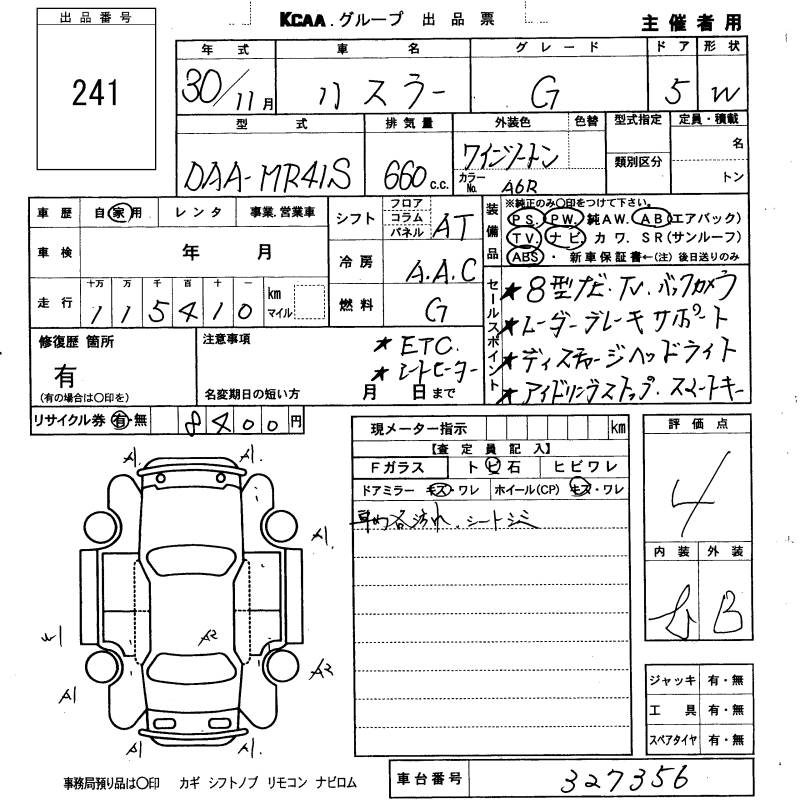 出品番号
241
KCAA.グループ 出品票
主催者用
年式 車名 グレード ドア 形状
30/11月 ハスラー G 5 W
型式 排気量 外装色 色替 型式指定 定員・積載
DAA-MR41S 660c.c. ワインツートン
カラーNo. A6R
類別区分
名
トン
車歴 自家用 レンタ 事業.営業車
車検 年 月
走行 十万 万 千 百 十 一
1 1 5 4 1 0 km マイル
シフト フロア コラム パネル AT
冷房 A.A.C
燃料 G
装備品
※純正のみ〇印をつけて下さい。
PS. PW. 純AW. AB(エアバック)
TV. ナビ. カワ. SR(サンルーフ)
ABS・ 新車保証書←(注)後日送りのみ
セールスポイント
★8型ナビ・TV・バックカメラ
★レーダーブレーキサポート
★ディスチャージヘッドライト
★アイドリングストップ・スマートキー
修復歴 箇所
有
(有の場合は〇印を)
注意事項
★ETC.
★シートヒーター
名変期日の短い方 月 日まで
リサイクル券 有・無 8400円
現メーター指示 km
【査定員記入】
Fガラス トビ石 ヒビワレ
ドアミラー キズ・ワレ ホイール(CP) キズ・ワレ
車内各汚れ、シートシミ
評価点
4
内装 外装
B
A1 A1
A1
A2
A2
A1
A1 A1
ジャッキ 有・無
工具 有・無
スペアタイヤ 有・無
事務局預り品は〇印 カギ シフトノブ リモコン ナビロム
車台番号 327356